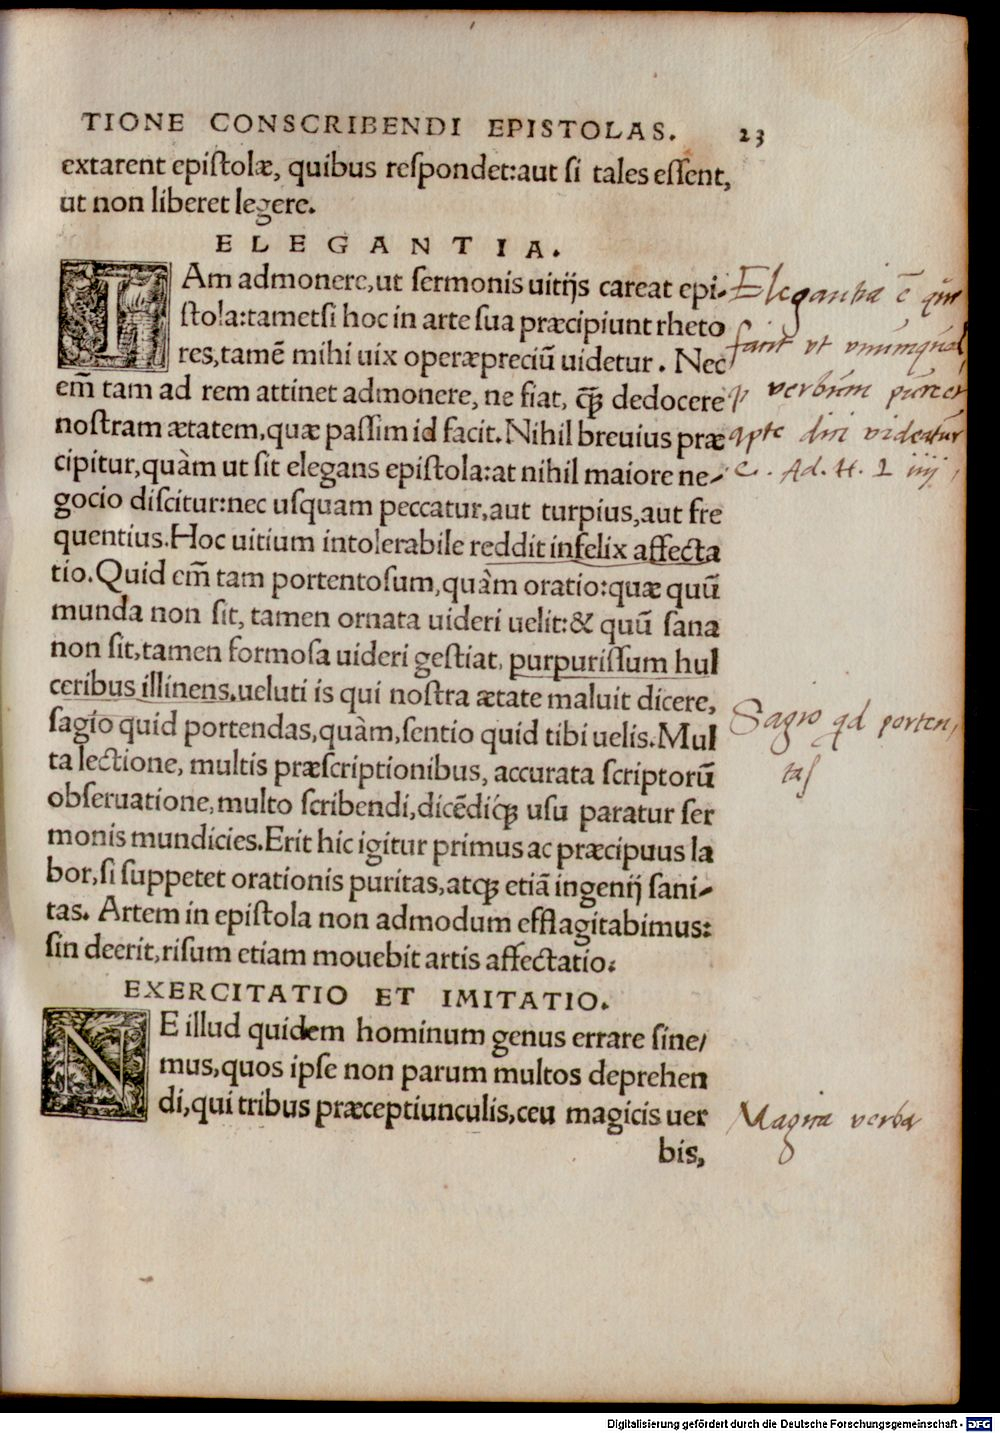 TIONE CONSCRIBENDI EPISTOLAS. 23
extarent epistolæ, quibus respondet: aut si tales essent,
ut non liberet legere.
ELEGANTIA.
IAm admonere, ut sermonis uitijs careat epi-
stola: tametsi hoc in arte sua præcipiunt rheto
res, tamē mihi uix operæpreciū uidetur. Nec
em̃ tam ad rem attinet admonere, ne fiat, q̃ꝫ dedocere
nostram ætatem, quæ passim id facit. Nihil breuius præ
cipitur, quàm ut sit elegans epistola: at nihil maiore ne-
gocio discitur: nec usquam peccatur, aut turpius, aut fre
quentius. Hoc uitium intolerabile reddit infelix affecta
tio. Quid em̃ tam portentosum, quàm oratio: quæ quū
munda non sit, tamen ornata uideri uelit: & quū sana
non sit, tamen formosa uideri gestiat, purpurissum hul
ceribus illinens. ueluti is qui nostra ætate maluit dicere,
sagio quid portendas, quàm, sentio quid tibi uelis. Mul
ta lectione, multis præscriptionibus, accurata scriptorū
obseruatione, multo scribendi, dicēdiq́ꝫ usu paratur ser
monis mundicies. Erit hic igitur primus ac præcipuus la
bor, si suppetet orationis puritas, atqꝫ etiā ingenij sani-
tas. Artem in epistola non admodum efflagitabimus:
sin deerit, risum etiam mouebit artis affectatio.
EXERCITATIO ET IMITATIO.
NE illud quidem hominum genus errare sine/
mus, quos ipse non parum multos deprehen
di, qui tribus præceptiunculis, ceu magicis uer
bis,
Elegantia ē
facit vt vnumquod
verbum pure et
apte dici videatur
Ad. H. L iiij
Sagio qd porten,
tas
Magica verba
Digitalisierung gefördert durch die Deutsche Forschungsgemeinschaft - DFG